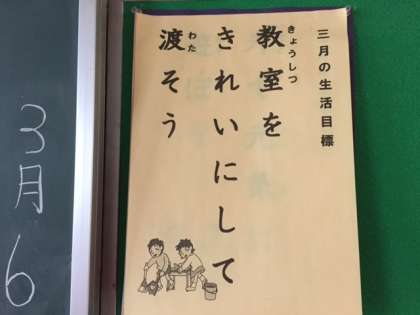 三月の生活目標
教室を
きょうしつ
きれいにして
渡そう
わた
3月6